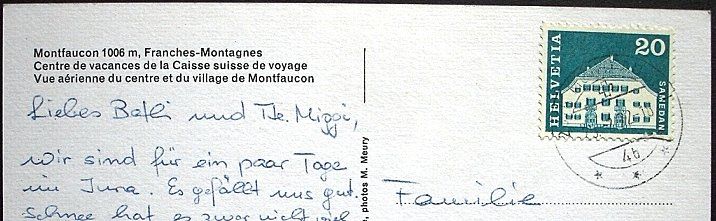 Montfaucon 1006 m, Franches-Montagnes
Centre de vacances de la Caisse suisse de voyage
Vue aérienne du centre et du village de Montfaucon
Liebes und
wir sind für ein paar Tage
im Jura. Es gefällt uns gut.
Schnee hat es zwar nicht viel
photos M. Meury
HELVETIA
20
SAMEDAN
46
Familie